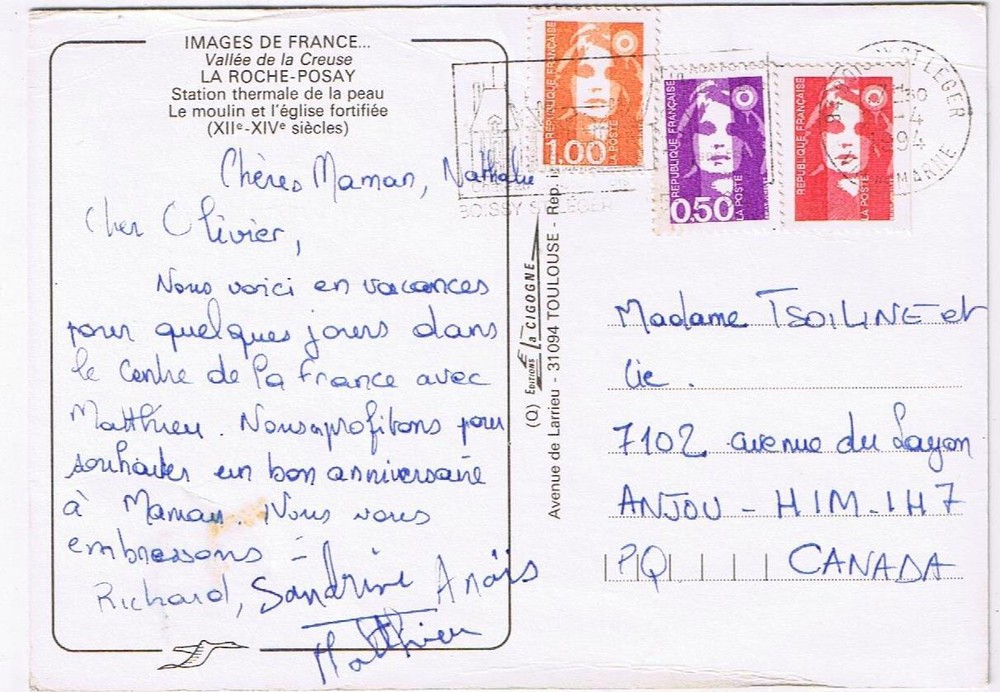 IMAGES DE FRANCE...
Vallée de la Creuse
LA ROCHE-POSAY
Station thermale de la peau
Le moulin et l'église fortifiée
(XIIe-XIVe siècles)
Chères Maman, Nathalie
Cher Olivier,
Nous voici en vacances
pour quelques jours dans
le Centre de la France avec
Matthieu. Nous profitons pour
souhaiter un bon anniversaire
à Maman. Nous vous
embrassons =
Richard, Sandrine Anaïs
Matthieu
(Q) EDITIONS la CIGOGNE
Avenue de Larrieu - 31094 TOULOUSE - Rep. i
BOISSY ST LEGER
RÉPUBLIQUE FRANÇAISE
1.00
LA POSTE
RÉPUBLIQUE FRANÇAISE
0,50
LA POSTE
RÉPUBLIQUE FRANÇAISE
LA POSTE
ST LEGER
MARNE
Madame TSOILINE et
Cie.
7102 avenue du Layon
ANJOU - H1M-1H7
PQ CANADA